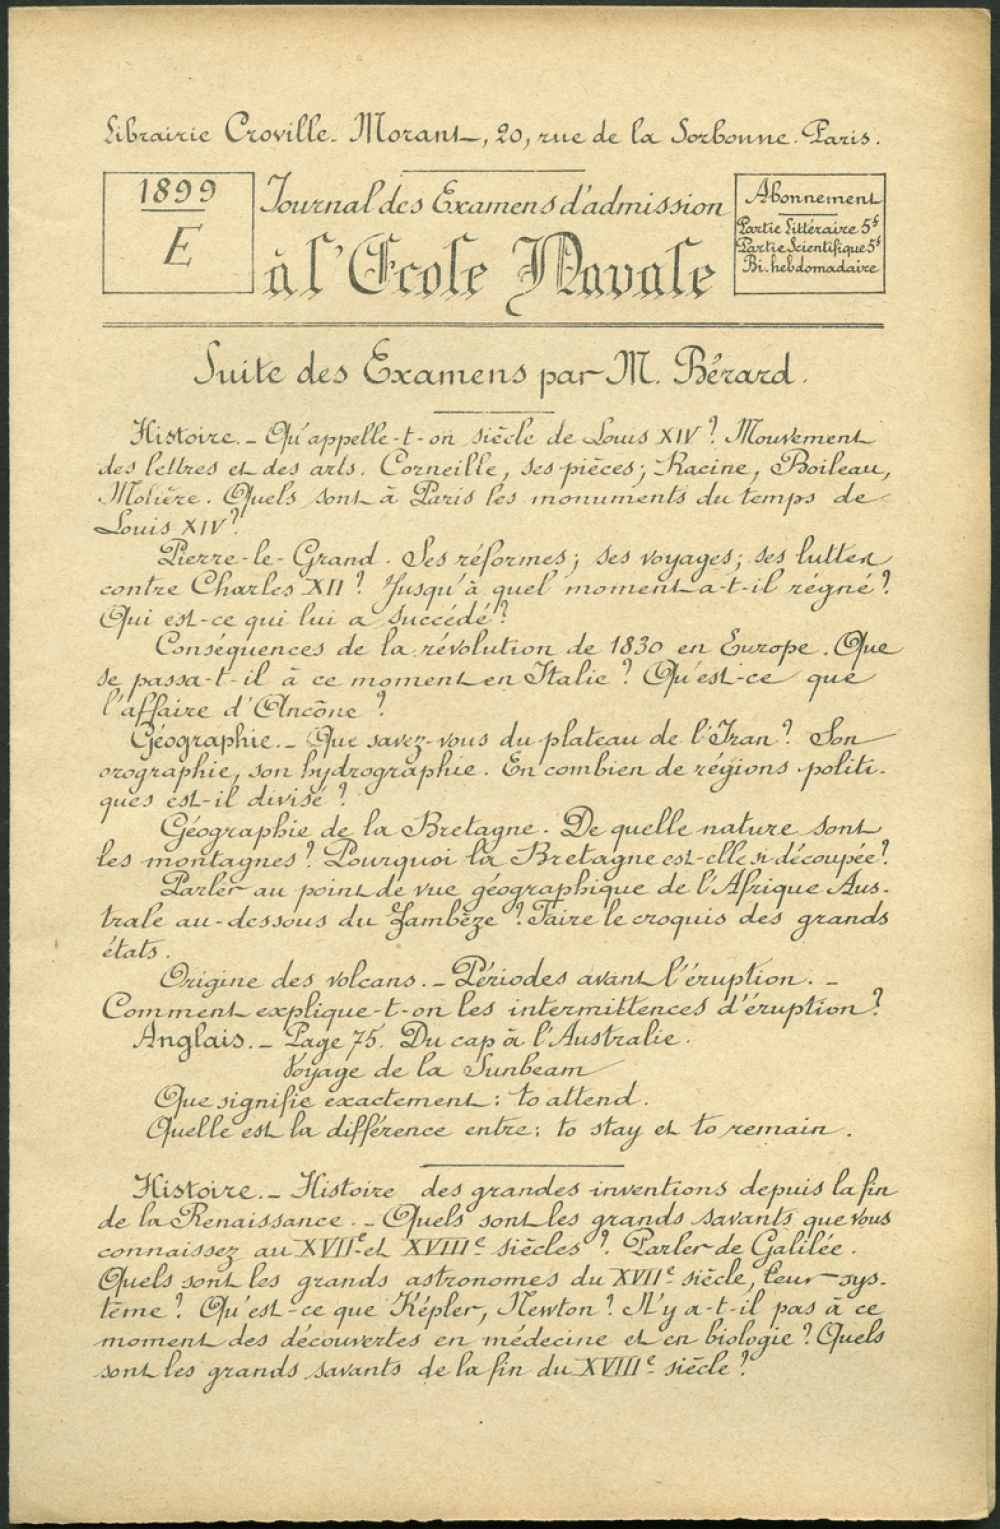 Librairie Croville-Morant, 20, rue de la Sorbonne. Paris.
1899
E
Journal des Examens d'admission
à l'Ecole Navale
Abonnement
Partie Littéraire 5f
Partie Scientifique 5f
Bi-hebdomadaire
Suite des Examens par M. Bérard.
Histoire. - Qu'appelle-t-on siècle de Louis XIV ? Mouvement
des lettres et des arts. Corneille, ses pièces ; Racine, Boileau,
Molière. Quels sont à Paris les monuments du temps de
Louis XIV ?
Pierre-le-Grand. Ses réformes ; ses voyages ; ses luttes
contre Charles XII ? Jusqu'à quel moment a-t-il régné ?
Qui est-ce qui lui a succédé ?
Conséquences de la révolution de 1830 en Europe. Que
se passa-t-il à ce moment en Italie ? Qu'est-ce que
l'affaire d'Ancône ?
Géographie. - Que savez-vous du plateau de l'Iran ? Son
orographie, son hydrographie. En combien de régions politi-
ques est-il divisé ?
Géographie de la Bretagne. De quelle nature sont
les montagnes ? Pourquoi la Bretagne est-elle si découpée ?
Parler au point de vue géographique de l'Afrique Aus-
trale au-dessous du Zambèze ? Faire le croquis des grands
états.
Origine des volcans. - Périodes avant l'éruption. -
Comment explique-t-on les intermittences d'éruption ?
Anglais. - Page 75. Du cap à l'Australie.
Voyage de la Sunbeam
Que signifie exactement : to attend.
Quelle est la différence entre : to stay et to remain.
Histoire. - Histoire des grandes inventions depuis la fin
de la Renaissance. - Quels sont les grands savants que vous
connaissez au XVIIe et XVIIIe siècles ? Parler de Galilée.
Quels sont les grands astronomes du XVIIe siècle, leur sys-
tème ? Qu'est-ce que Képler, Newton ? N'y a-t-il pas à ce
moment des découvertes en médecine et en biologie ? Quels
sont les grands savants de la fin du XVIIIe siècle ?